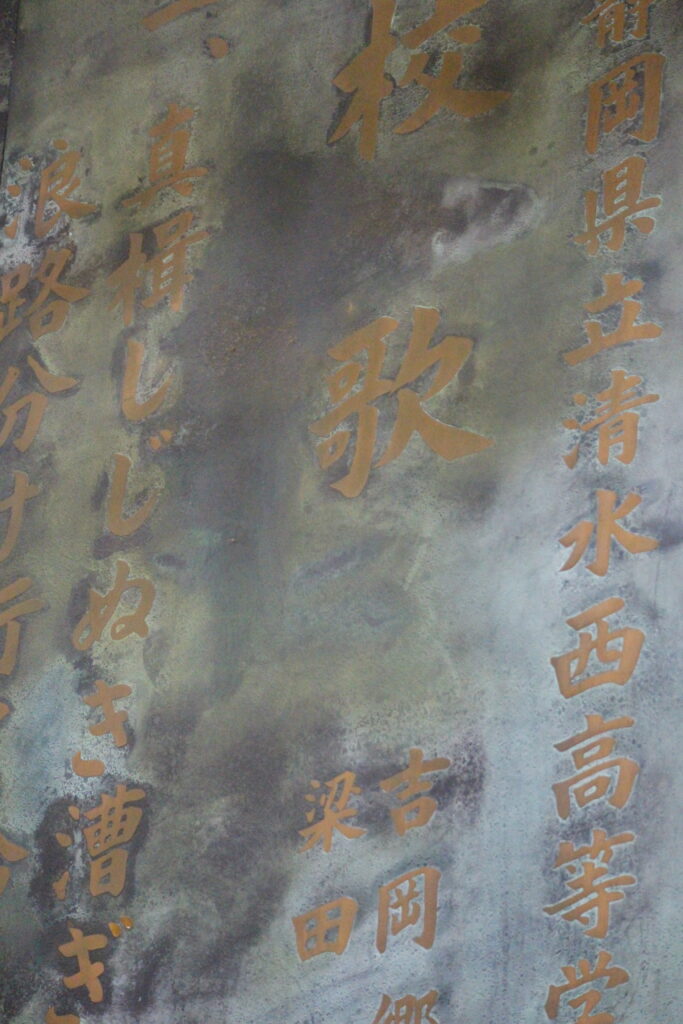 岡県立清水西高等学
校歌
吉岡郷
梁田
一、
真楫しじぬき漕ぎ
浪路分け行